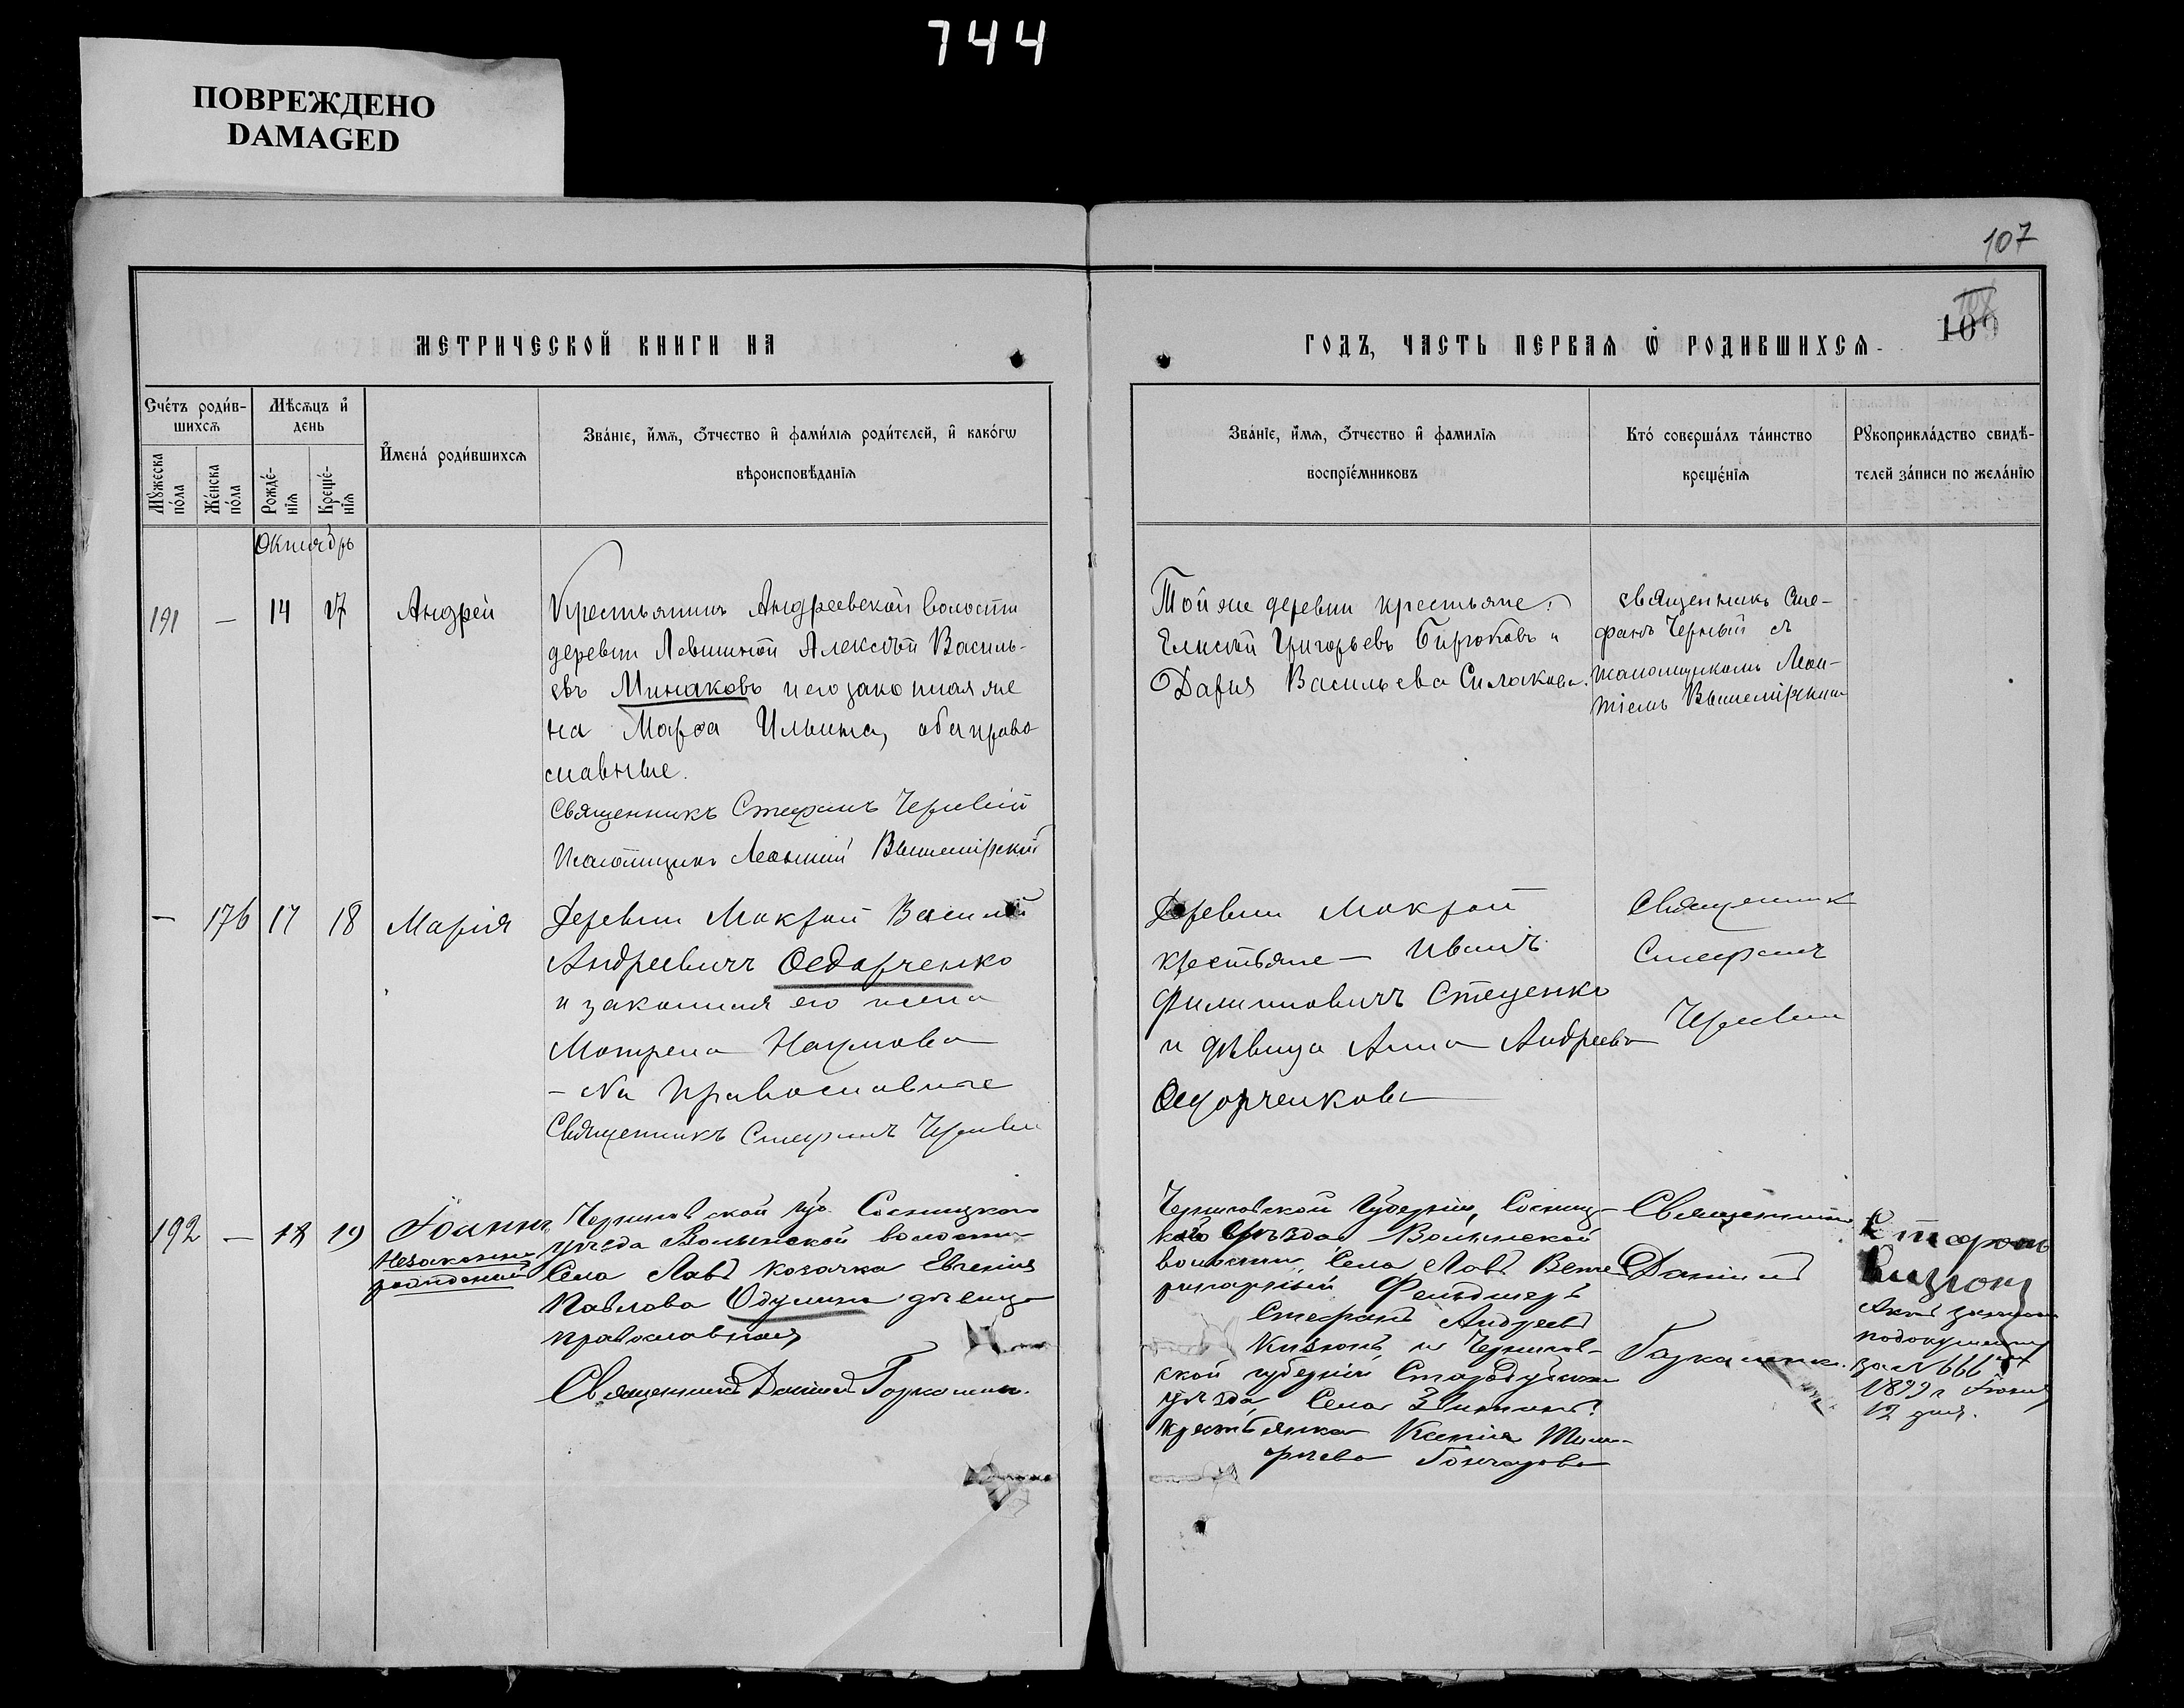 744
ПОВРЕЖДЕНО
DAMAGED
107
109
МЕТРИЧЕСКОЙ КНИГИ НА
ГОДЪ, ЧАСТЬ ПЕРВАѦ Ѡ РОДИВШИХСѦ.
Сче́тъ роди́в-
шихсѧ
Мѣ́сѧцъ и҆
день
Мꙋ́жеска
по́ла
Же́нска
по́ла
Рожде́-
нїѧ
Креще́-
нїѧ
И҆мена́ роди́вшихсѧ
Зва́нїе, и҆́мѧ, ѻ҆́тчество и҆ фами́лїѧ роди́телей, и҆ како́гѡ
вѣроисповѣ́данїѧ
Зва́нїе, и҆́мѧ, ѻ҆́тчество и҆ фами́лїѧ
воспрїе́мниковъ
Кто́ соверша́лъ та́инство
креще́нїѧ
Рꙋкоприкла́дство свидѣ́-
телей за́писи по жела́нїю
Октябрь
191 — 14 17 Андрей
Крестьянинъ Андреевской волости
деревни Левшиной Алексѣй Василь-
евъ Минаковъ и его законная же
на Марѳа Ильина, оба право
славные.
Священникъ Стефанъ Червый
Псаломщикъ Леонтий Вышемірский
Той же деревни крестьяне:
Елисѣй Григорьевъ Бирюковъ и
Дарья Васильева
Священникъ Сте-
фанъ Червый съ
псаломщикомъ Леон-
тіемъ Вышемірским
— 176 17 18 Марія
Деревни Мокрой Василий
Андреевичъ Ѳедорченко
и законная его жена
Мотрена Наумова
православные
Священникъ Стефанъ Червый
Деревни Мокрой
крестьяне — Иванъ
Филипповичъ Стеценко
и дѣвица Анна Андреева
Ѳедорченкова
Священник
Стефанъ
Червый
192 — 18 19 Іоаннъ
Незаконно
рожденный
Черниговской губ. Сосницкого
уѣзда Волынской волости
Села Лавъ козачка Евгенія
Павлова дѣвица
православная
Священникъ Даниилъ
Черниговской Губерніи, Сосниц-
кого Уѣзда Волынской
волости, Села Лавъ Вете
ринарный Фельдшеръ
Стефанъ Андреевъ
Кизюнъ и Чернигов-
ской губерніи Стародубского
уѣзда, Села
крестьянка Ксенія Тимо-
фѣева Гончарова
Священникъ
Даниилъ
по документу
за № 666
1899 г. Іюня
12 дня.